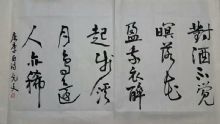 對酒不覺
暝落花
盈我衣醉
起步溪
月鳥還
人亦稀
唐李白詩